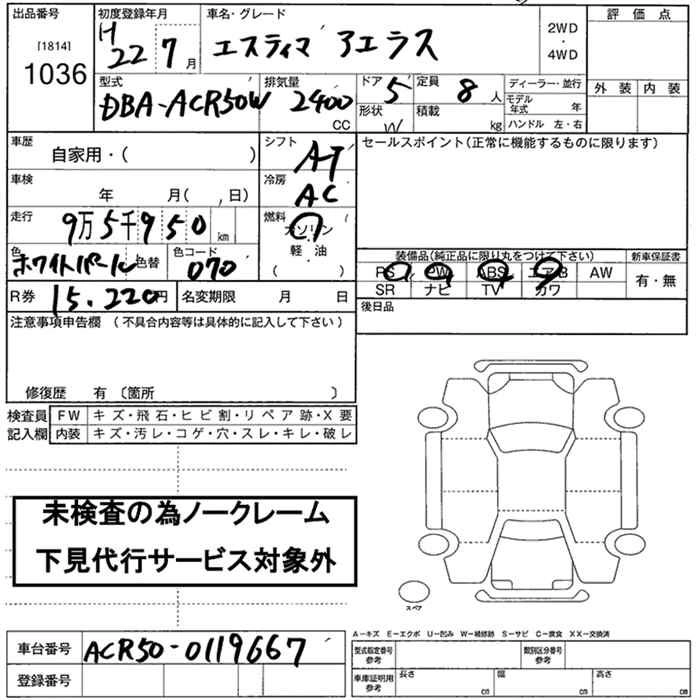 出品番号 初度登録年月 車名・グレード 評価点
[1814] H 2WD
1036 22 7月 エスティマ アエラス ・
4WD
型式 排気量 ドア 定員 ディーラー・並行 外装 内装
DBA-ACR50W 2400 CC 5 8人 モデル年式 年
形状 W 積載 kg ハンドル 左・右
車歴 自家用・( ) シフト AT セールスポイント(正常に機能するものに限ります)
車検 年 月( , 日) 冷房 AC
走行 9万5千950 km 燃料 ガソリン
軽・油
色 ホワイトパール 色替 色コード 070 ( )
装備品(純正品に限り丸をつけて下さい) 新車保証書
PS PW ABS エアB AW 有・無
SR ナビ TV カワ
R券 15.220円 名変期限 月 日 後日品
注意事項申告欄(不具合内容等は具体的に記入して下さい)
修復歴 有 〔箇所 〕
検査員 FW キズ・飛石・ヒビ割・リペア跡・X要
記入欄 内装 キズ・汚レ・コゲ・穴・スレ・キレ・破レ
未検査の為ノークレーム
下見代行サービス対象外
スペア
A-キズ E-エクボ U-凹み W-補修跡 S-サビ C-腐食 XX-交換済
車台番号 ACR50-0119667 型式指定番号参考 類別区分番号参考
登録番号 車庫証明用参考 長さ cm 幅 cm 高さ cm